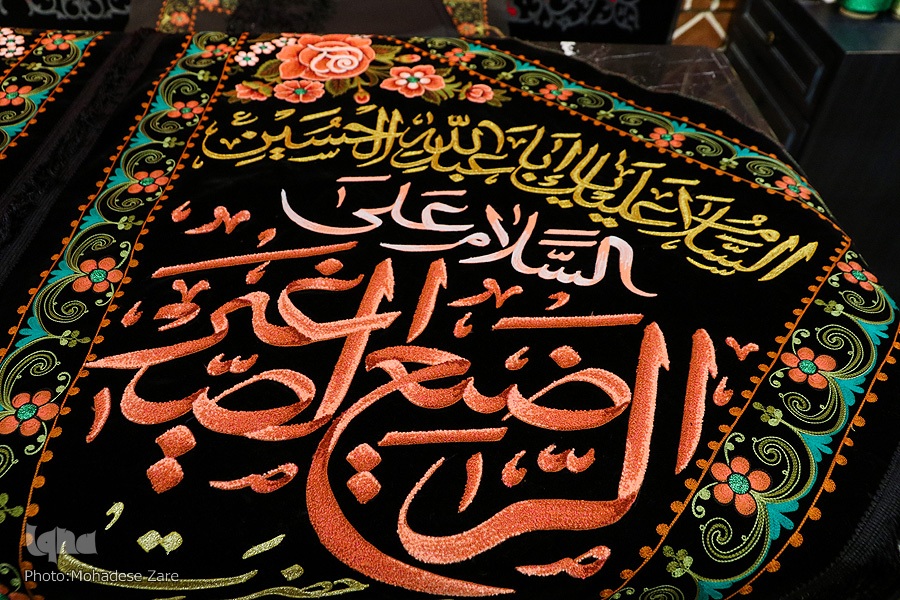 السَّلامُ عَلَیكَ یا اَبا عَبدِاللّهِ الحُسَینِ
السَّلامُ عَلَی
الرَّضیعِ الصَّغیرِ
iqna
Photo:Mohadese-Zare